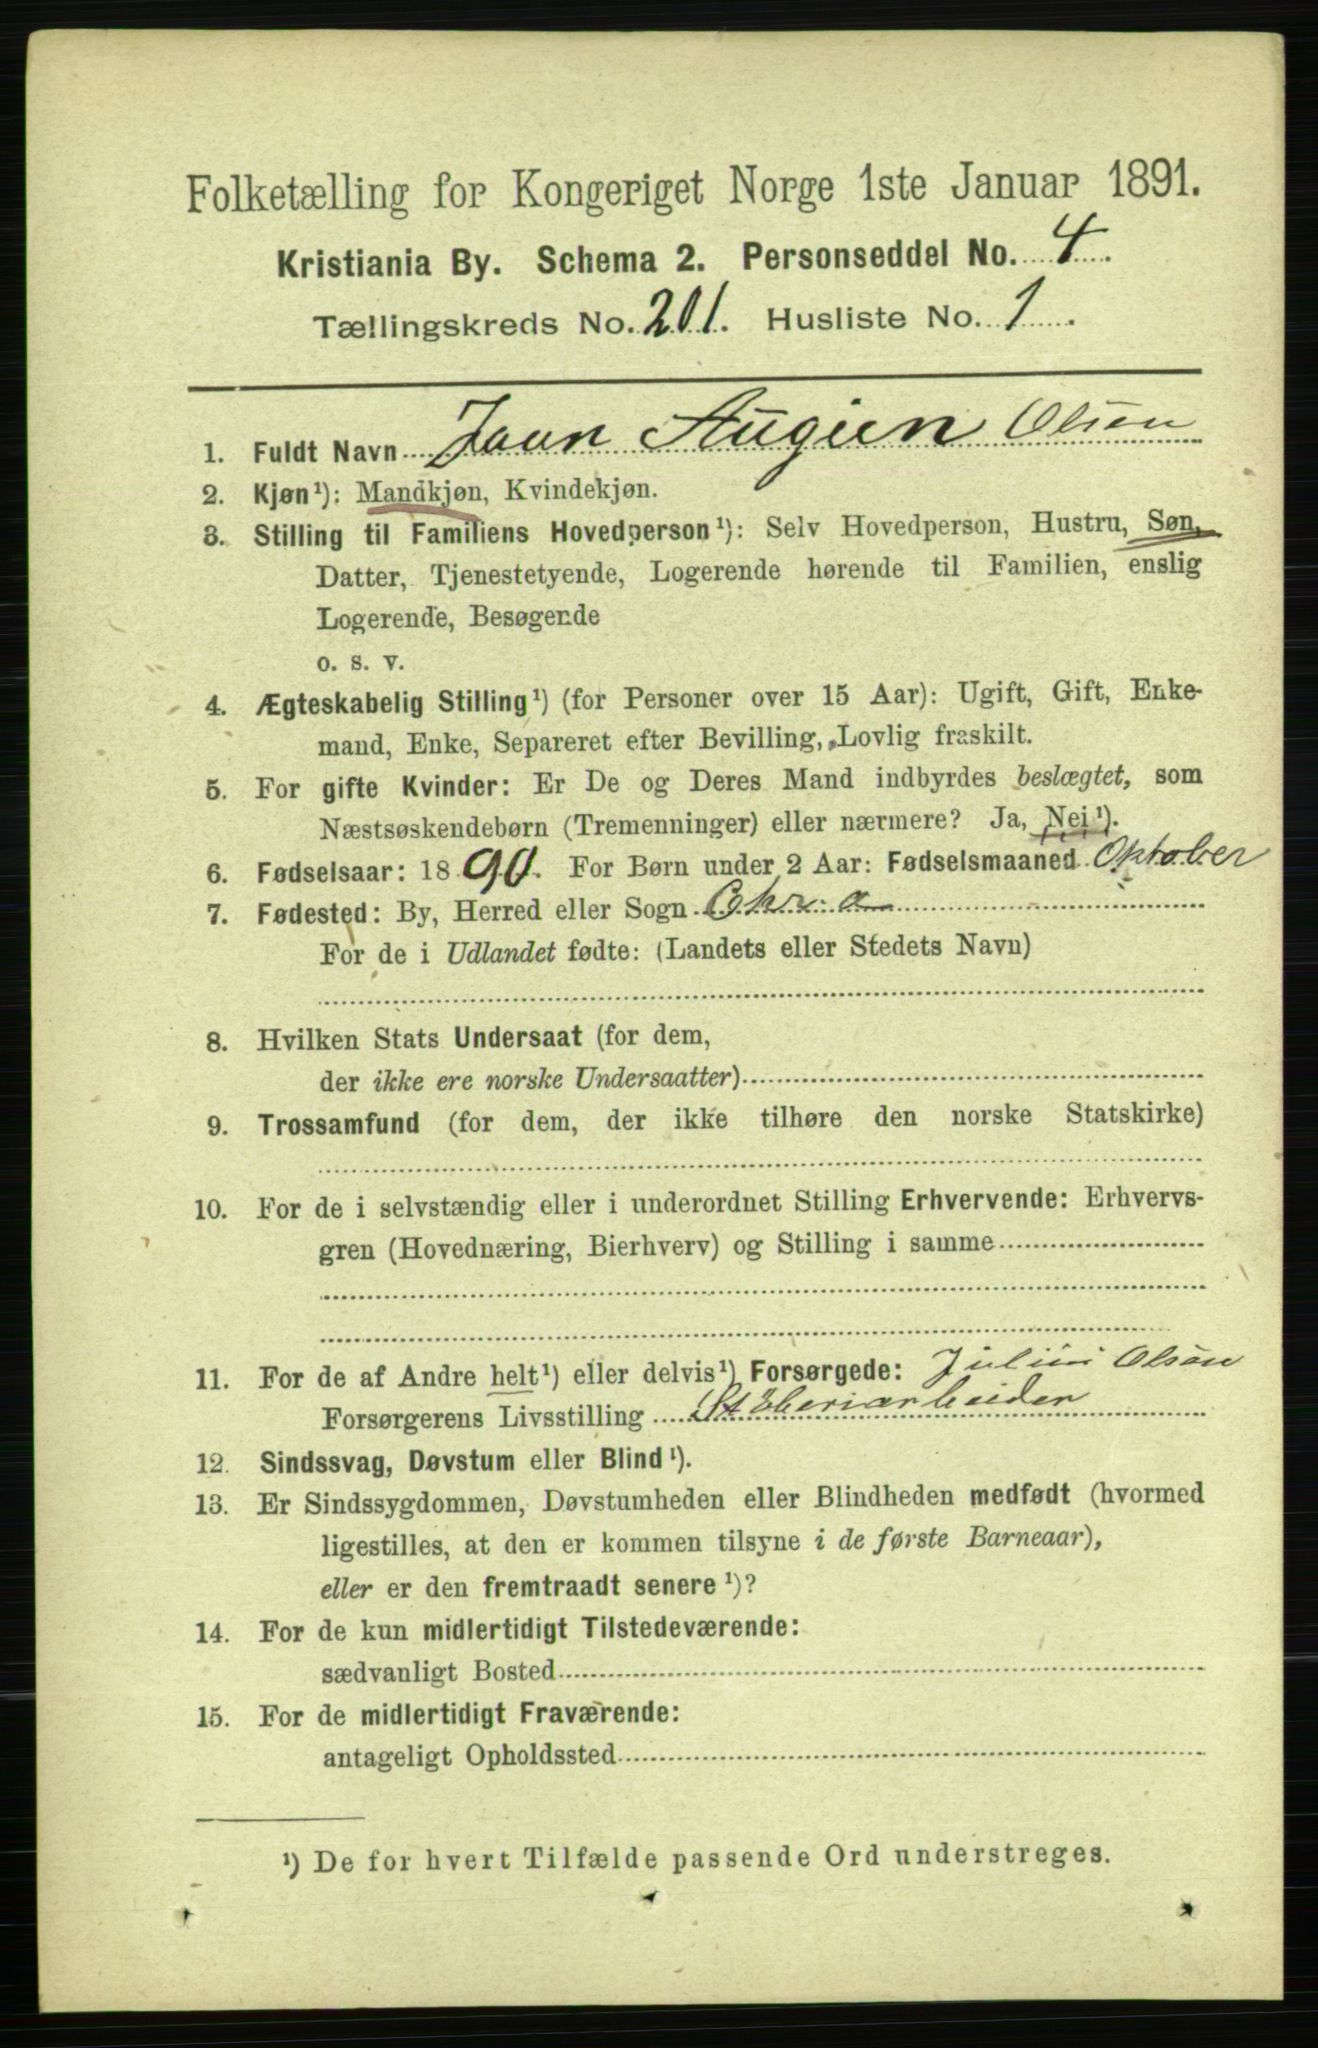 Folketælling for Kongeriget Norge 1ste Januar 1891.
Kristiania By. Schema 2. Personseddel No. 4.
Tællingskreds No. 201. Husliste No. 1.
1. Fuldt Navn Olsen
2. Kjøn¹): Mandkjøn, Kvindekjøn.
3. Stilling til Familiens Hovedperson¹): Selv Hovedperson, Hustru, Søn,
Datter, Tjenestetyende, Logerende hørende til Familien, enslig
Logerende, Besøgende
o. s. v.
4. Ægteskabelig Stilling¹) (for Personer over 15 Aar): Ugift, Gift, Enke-
mand, Enke, Separeret efter Bevilling, Lovlig fraskilt.
5. For gifte Kvinder: Er De og Deres Mand indbyrdes beslægtet, som
Næstsøskendebørn (Tremenninger) eller nærmere? Ja, Nei¹).
6. Fødselsaar: 1890. For Børn under 2 Aar: Fødselsmaaned Oktober
7. Fødested: By, Herred eller Sogn Chr. a
For de i Udlandet fødte: (Landets eller Stedets Navn)
8. Hvilken Stats Undersaat (for dem,
der ikke ere norske Undersaatter)
9. Trossamfund (for dem, der ikke tilhøre den norske Statskirke)
10. For de i selvstændig eller i underordnet Stilling Erhvervende: Erhvervs-
gren (Hovednæring, Bierhverv) og Stilling i samme
11. For de af Andre helt¹) eller delvis¹) Forsørgede: Olsen
Forsørgerens Livsstilling Stöberiarbeider
12. Sindssvag, Døvstum eller Blind¹).
13. Er Sindssygdommen, Døvstumheden eller Blindheden medfødt (hvormed
ligestilles, at den er kommen tilsyne i de første Barneaar),
eller er den fremtraadt senere¹)?
14. For de kun midlertidigt Tilstedeværende:
sædvanligt Bosted
15. For de midlertidigt Fraværende:
antageligt Opholdssted
¹) De for hvert Tilfælde passende Ord understreges.